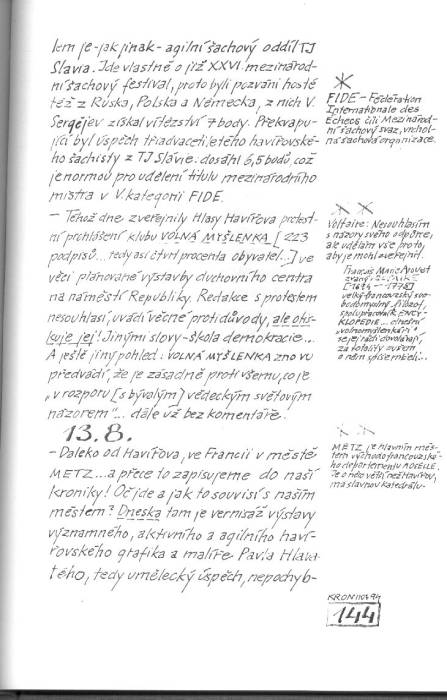 lem je - jak jinak - agilní šachový oddíl TJ
Slavia. Jde vlastně o již XXVI. mezinárod-
ní šachový festival, proto byli pozváni hosté
též z Ruska, Polska a Německa, z nich V.
Sergějev získal vítězství 7 body. Překvapu-
jící byl úspěch třiadvacetiletého havířovské-
ho šachisty z TJ Slávie: dosáhl 6,5 bodů, což
je normou pro udělení titulu mezinárodního
mistra v V. kategorii FIDE.
- Téhož dne zveřejnily Hlasy Havířova protest-
ní prohlášení klubu VOLNÁ MYŠLENKA [223
podpisů... tedy asi čtvrt procenta obyvatel..] ve
věci plánované výstavby duchovního centra
na náměstí Republiky. Redakce s protestem
nesouhlasí, uvádí věcné protidůvody, ale otis-
kuje jej! Jinými slovy - škola demokracie...
A ještě jiný pohled: VOLNÁ MYŠLENKA znovu
předvádí, že je zásadně proti všemu, co je
„v rozporu [s bývalým] vědeckým světovým
názorem"... dále už bez komentáře.
13.8.
- Daleko od Havířova, ve Francii v městě
METZ... a přece to zapisujeme do naší
kroniky! Oč jde a jak to souvisí s naším
městem? Dneska tam je vernisáž výstavy
významného, aktivního a agilního haví-
řovského grafika a malíře Pavla Hlava-
tého, tedy umělecký úspěch, nepochyb-
FIDE - Fédération
Internationale des
Echecs čili Mezinárod-
ní šachový svaz, vrchol-
ná šachová organizace.
Voltaire: Nesouhlasím
s názory svého odpůrce,
ale udělám vše pro to,
aby je mohl zveřejnit.
François Marie Arouet
zvaný VOLTAIRE
[1694 - 1778]
velký francouzský svo-
bodomyslný filozof,
spolupracovník ENCY-
KLOPEDIE... dnešní
„volnomyšlenkáři"
se jej rádi dovolávají,
METZ je hlavním měs-
tem východofrancouzské-
ho departementu MOSELLE.
Je o něco větší než Havířov,
má slavnou katedrálu.
KRONIKA 94
144